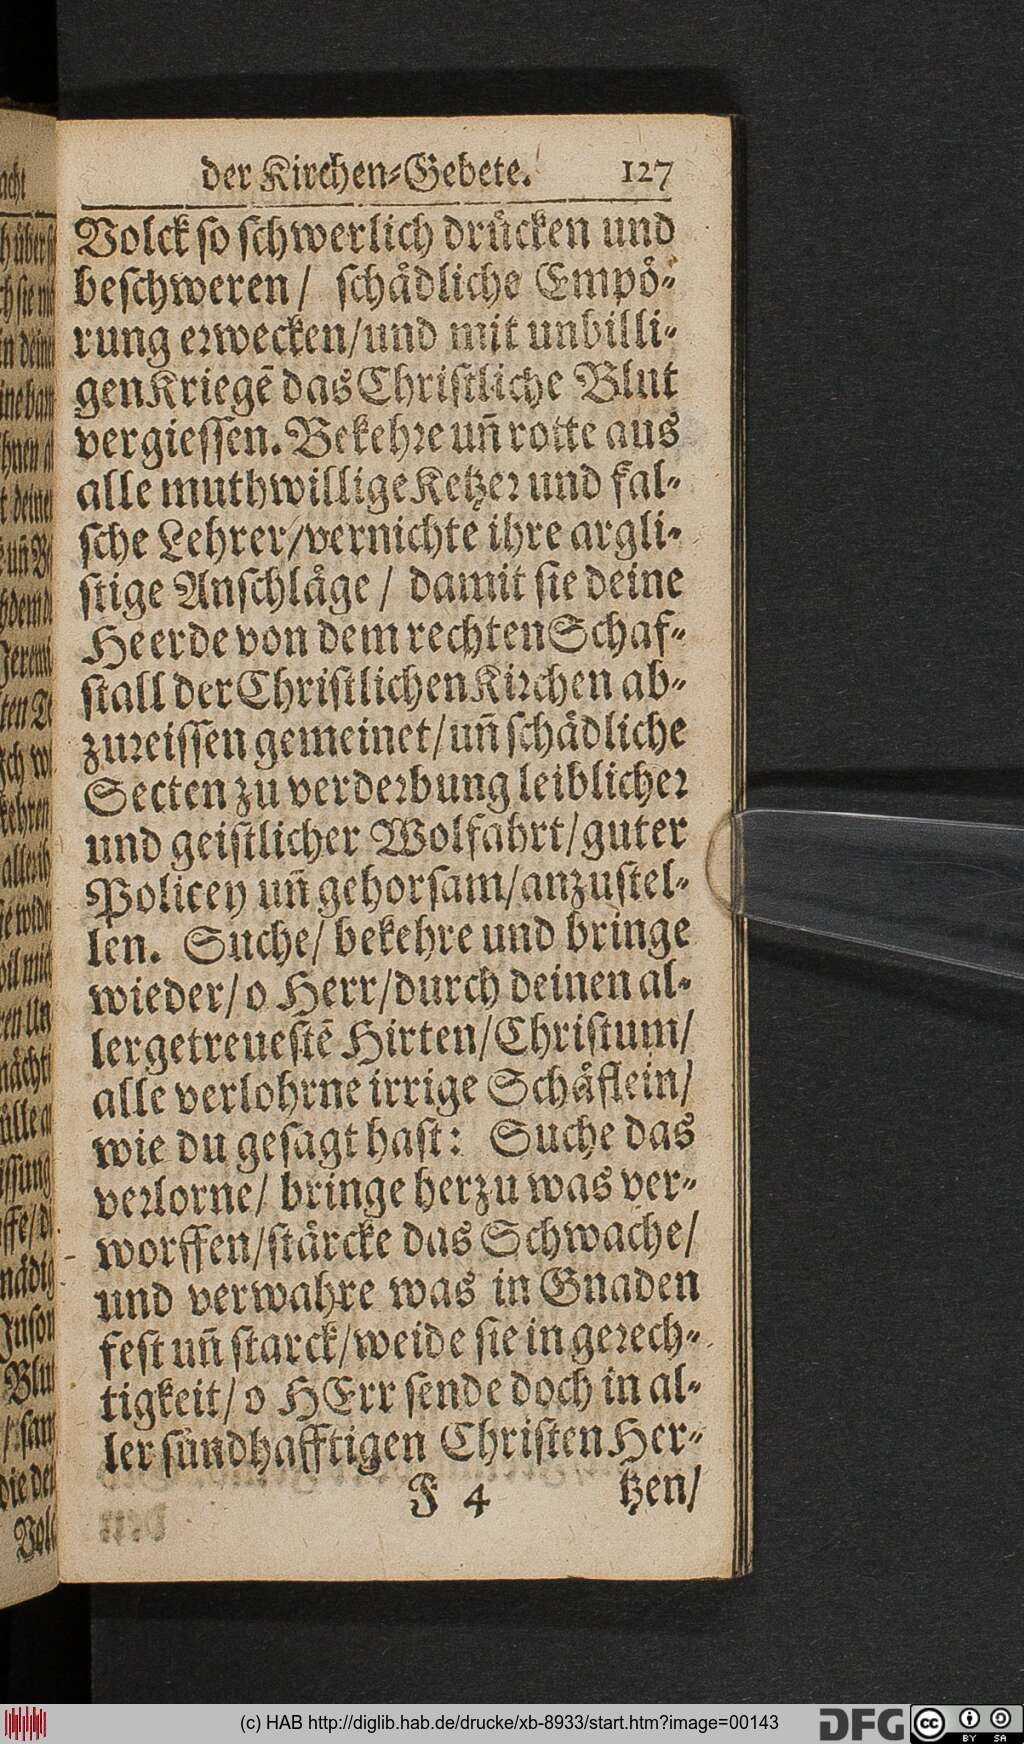 der Kirchen-Gebete. 127
Volck so schwerlich drücken und
beschweren / schädliche Empö-
rung erwecken/und mit unbilli-
gen Kriegē das Christliche Blut
vergiessen. Bekehre uñ rotte aus
alle muthwillige Ketzer und fal-
sche Lehrer/vernichte ihre argli-
stige Anschläge / damit sie deine
Heerde von dem rechten Schaf-
stall der Christlichen Kirchen ab-
zureissen gemeinet/uñ schädliche
Secten zu verderbung leiblicher
und geistlicher Wolfahrt/guter
Policey uñ gehorsam/anzustel-
len. Suche/ bekehre und bringe
wieder/ o Herr/durch deinen al-
lergetreuestē Hirten/Christum/
alle verlohrne irrige Schäflein/
wie du gesagt hast: Suche das
verlorne/ bringe herzu was ver-
worffen/stärcke das Schwache/
und verwahre was in Gnaden
fest uñ starck/weide sie in gerech-
tigkeit/ o HErr sende doch in al-
ler sündhafftigen Christen Her-
F 4 tzen/
(c) HAB http://diglib.hab.de/drucke/xb-8933/start.htm?image=00143
DFG
cc BY SA